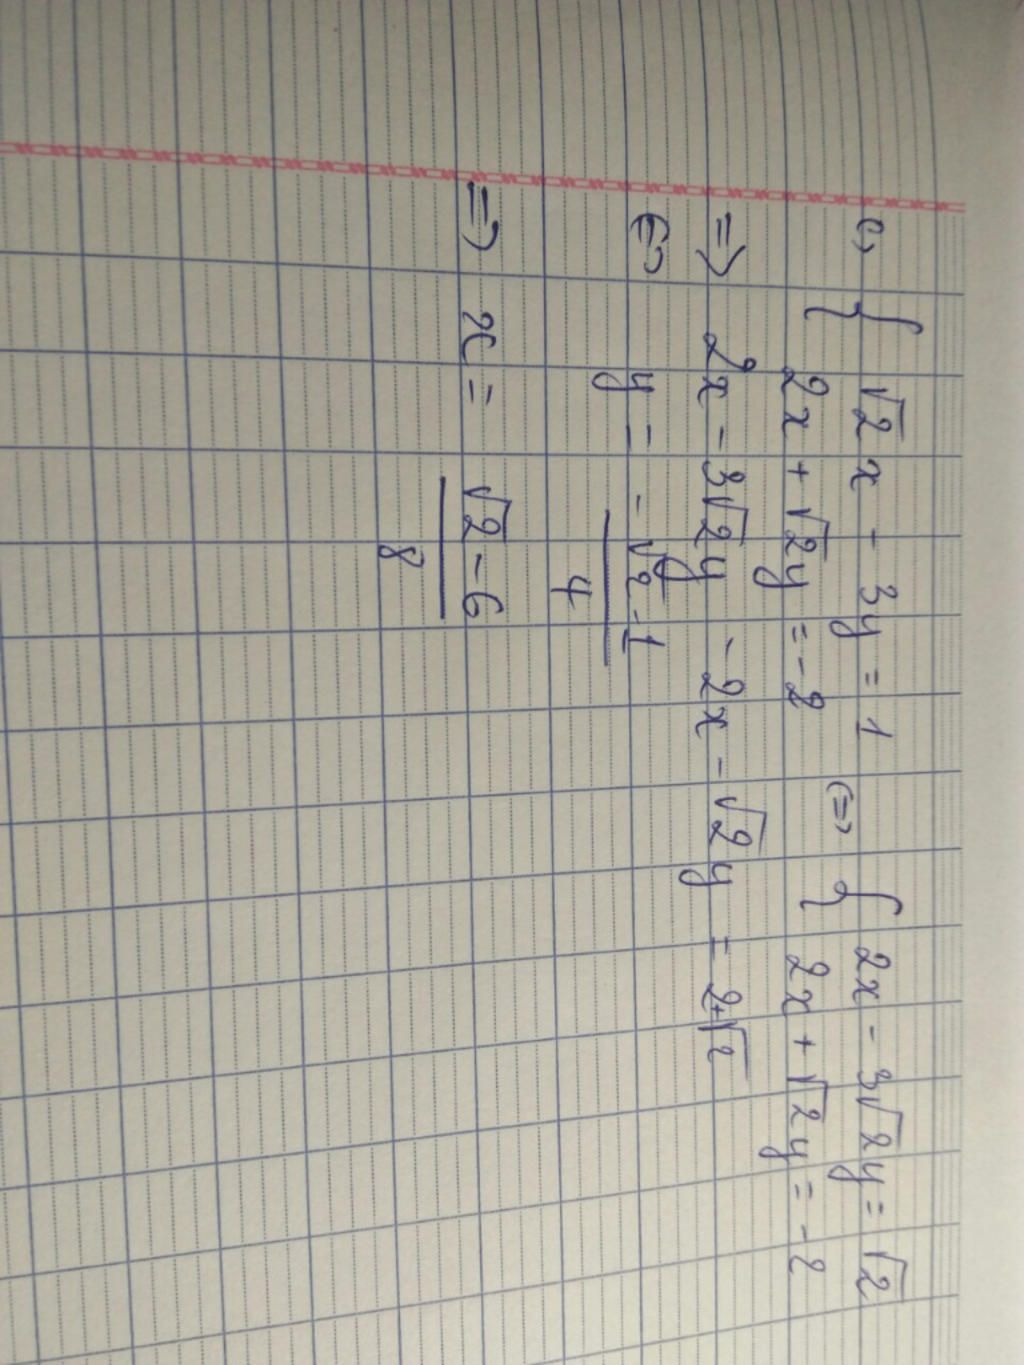 c, { √2 x - 3y = 1 <=> { 2x - 3√2y = √2
2x + √2y = -2 2x + √2y = -2
=> 2x - 3√2y - 2x - √2y = 2+√2
<=> y = -√2 - 1 / 4
=> x = √2 - 6 / 8